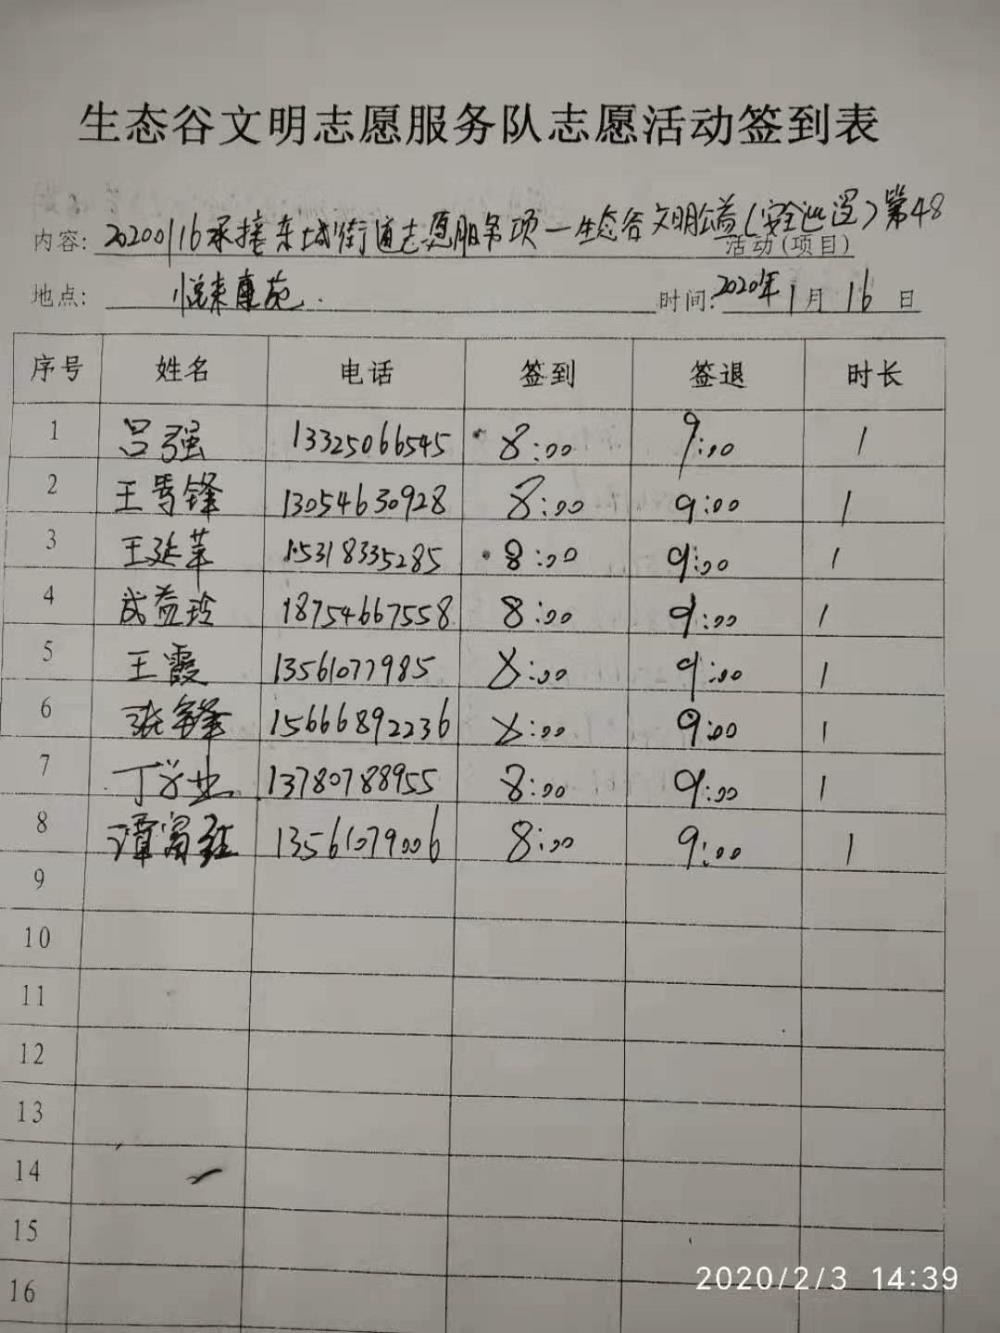 生态谷文明志愿服务队志愿活动签到表
内容: 20200116承接东城街道志愿服务项一生态谷文明公益(安全巡逻)第48
活动(项目)
地点: 悦来康苑. 时间: 2020年1月16日
序号 姓名 电话 签到 签退 时长
1 吕强 13325066545 8:00 9:00 1
2 王雪锋 13054630928 8:00 9:00 1
3 王延苹 15318335285 8:00 9:00 1
4 成益玲 18754667558 8:00 9:00 1
5 王霞 13561077985 8:00 9:00 1
6 张锋 15666892236 8:00 9:00 1
7 丁学业 13780788955 8:00 9:00 1
8 谭 13561079006 8:00 9:00 1
9
10
11
12
13
14
15
16
2020/2/3 14:39